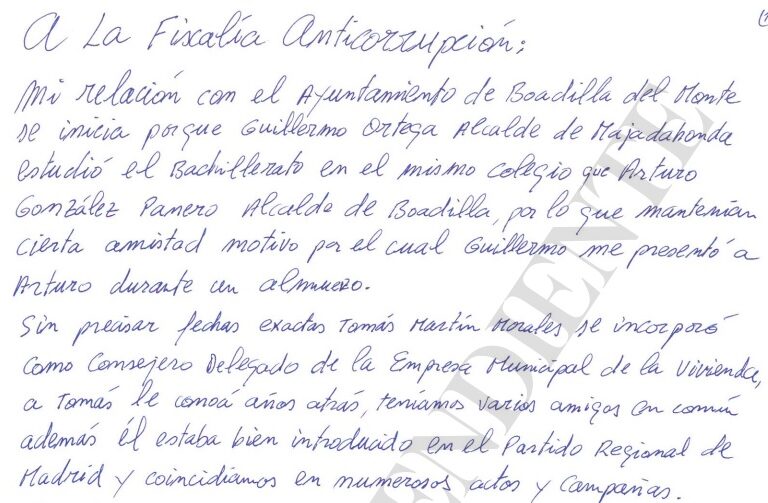 A La Fiscalía Anticorrupción:
Mi relación con el Ayuntamiento de Boadilla del Monte
se inicia porque Guillermo Ortega Alcalde de Majadahonda
estudió el Bachillerato en el mismo colegio que Arturo
González Panero Alcalde de Boadilla, por lo que mantenían
cierta amistad motivo por el cual Guillermo me presentó a
Arturo durante un almuerzo.
Sin precisar fechas exactas Tomás Martín Morales se incorporó
como Consejero Delegado de la Empresa Municipal de la Vivienda,
a Tomás le conocía años atrás, teníamos varios amigos en común
además él estaba bien introducido en el Partido Regional de
Madrid y coincidíamos en numerosos actos y Campañas.
ENDIENTE
ENDIENTE